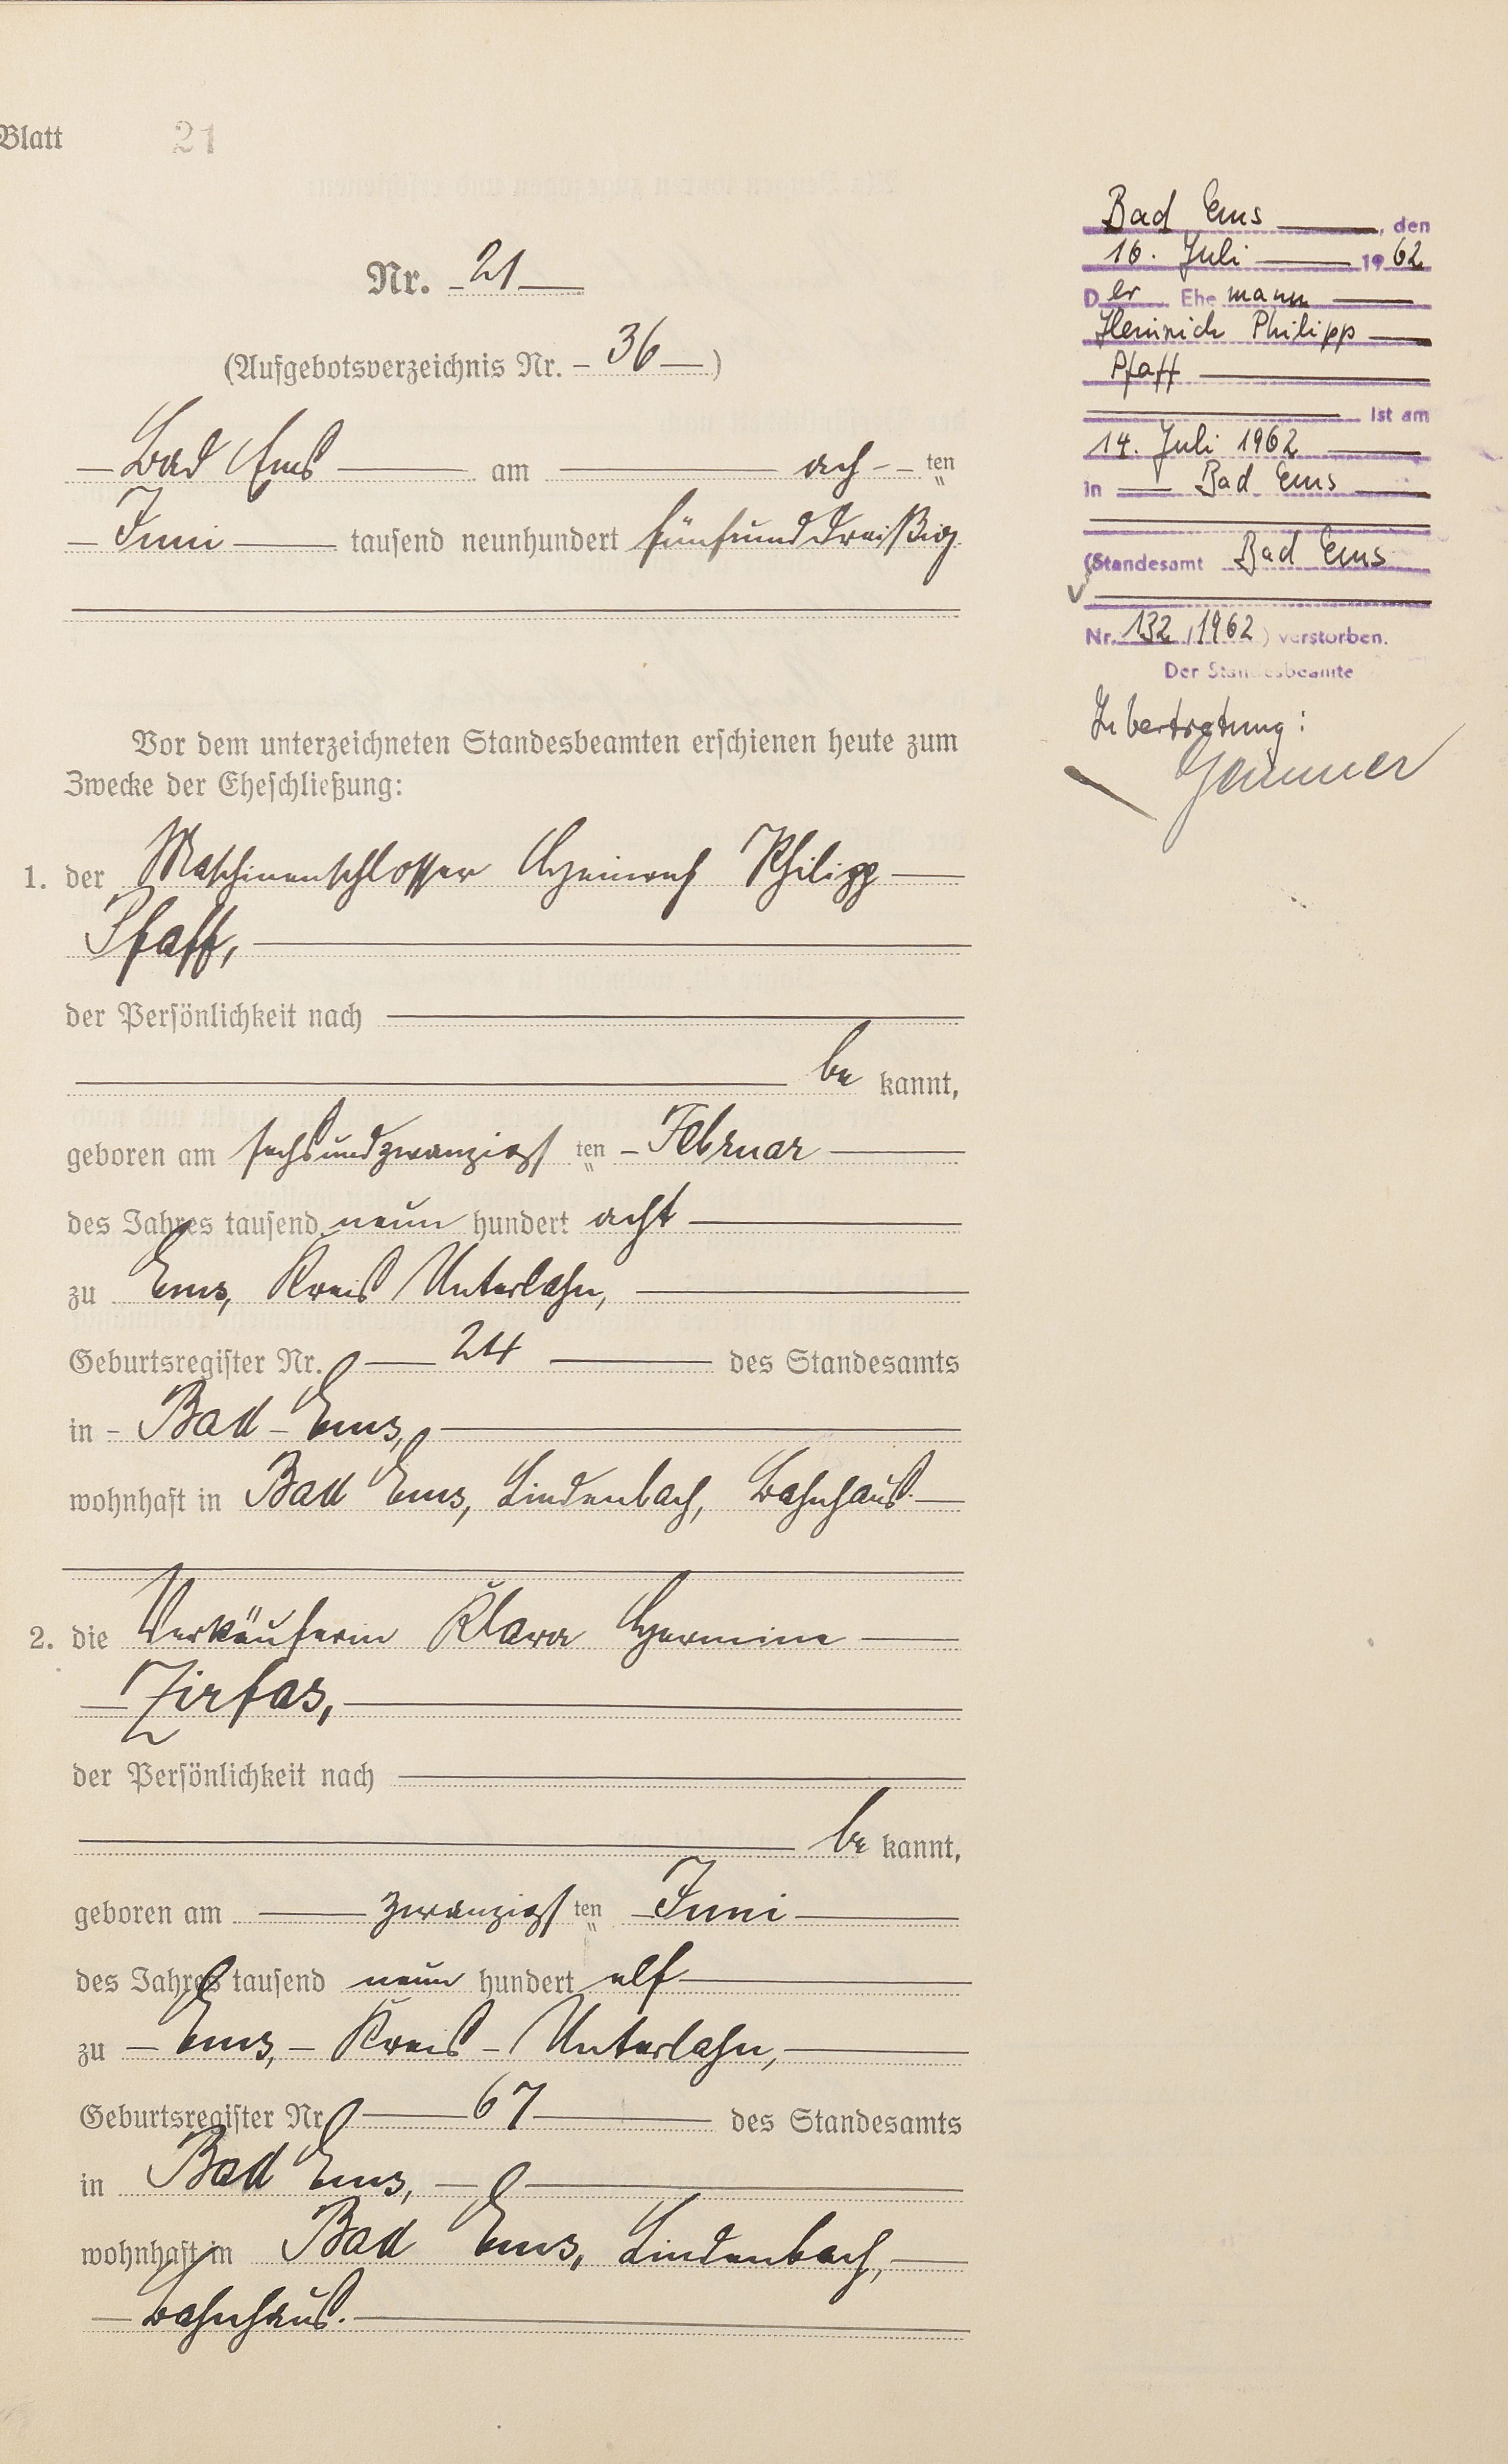 Blatt 21
Nr. 21
(Aufgebotsverzeichnis Nr. 36)
Bad Ems am ach ten
Juni tausend neunhundert fünfunddreißig.
Vor dem unterzeichneten Standesbeamten erschienen heute zum
Zwecke der Eheschließung:
1. der Maschinenschlosser Heinrich Philipp
Pfaff,
der Persönlichkeit nach
be kannt,
geboren am sechsundzwanzigst ten Februar
des Jahres tausend neun hundert acht
zu Ems, Kreis Unterlahn,
Geburtsregister Nr. 24 des Standesamts
in Bad Ems,
wohnhaft in Bad Ems, Lindenbach, Bahnhaus.
2. die Verkäuferin Klara Hermine
Zirfas,
der Persönlichkeit nach
be kannt,
geboren am zwanzigst ten Juni
des Jahres tausend neun hundert elf
zu Ems, Kreis Unterlahn,
Geburtsregister Nr. 67 des Standesamts
in Bad Ems,
wohnhaft in Bad Ems, Lindenbach,
Bahnhaus.
Bad Ems, den
16. Juli 1962
Der Ehemann
Heinrich Philipp
Pfaff
ist am
14. Juli 1962
in Bad Ems
(Standesamt Bad Ems
Nr. 132/1962) verstorben.
Der Standesbeamte
In Vertretung: